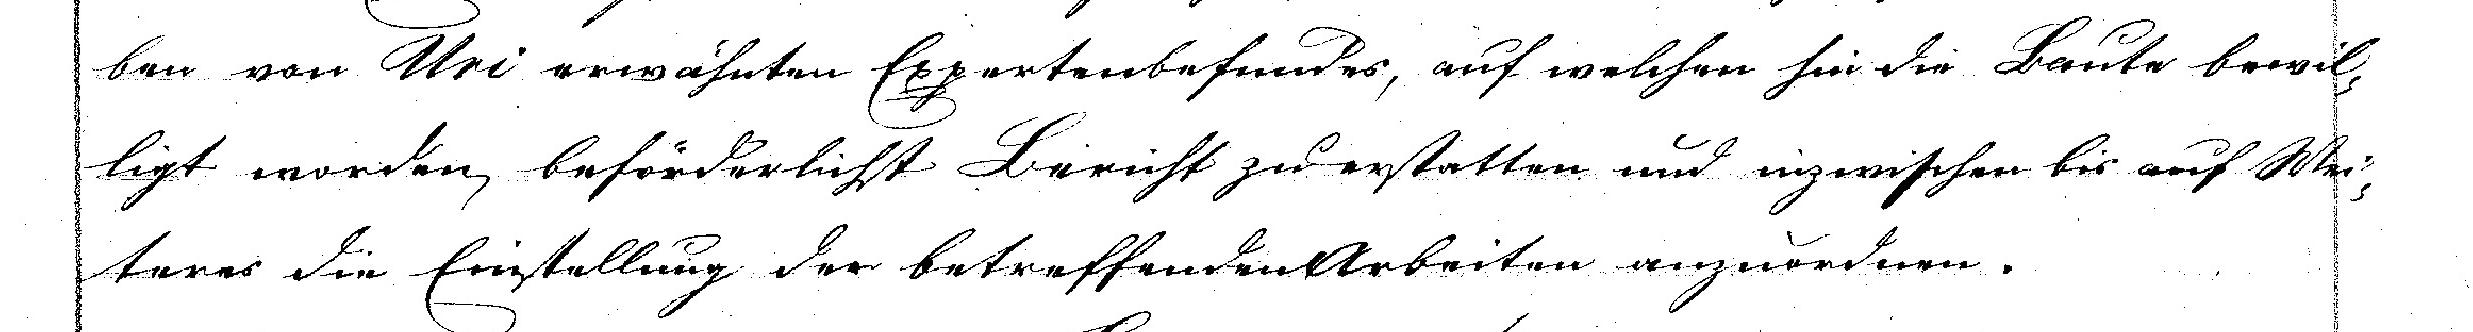 ben von Uri erwähnten Expertenbefundes, auf welchen hin die Baute bewil-
ligt worden, beförderlichst Bericht zu erstatten und inzwischen bis auf Wei-
teres die Einstellung der betreffenden Arbeiten anzuordnen.